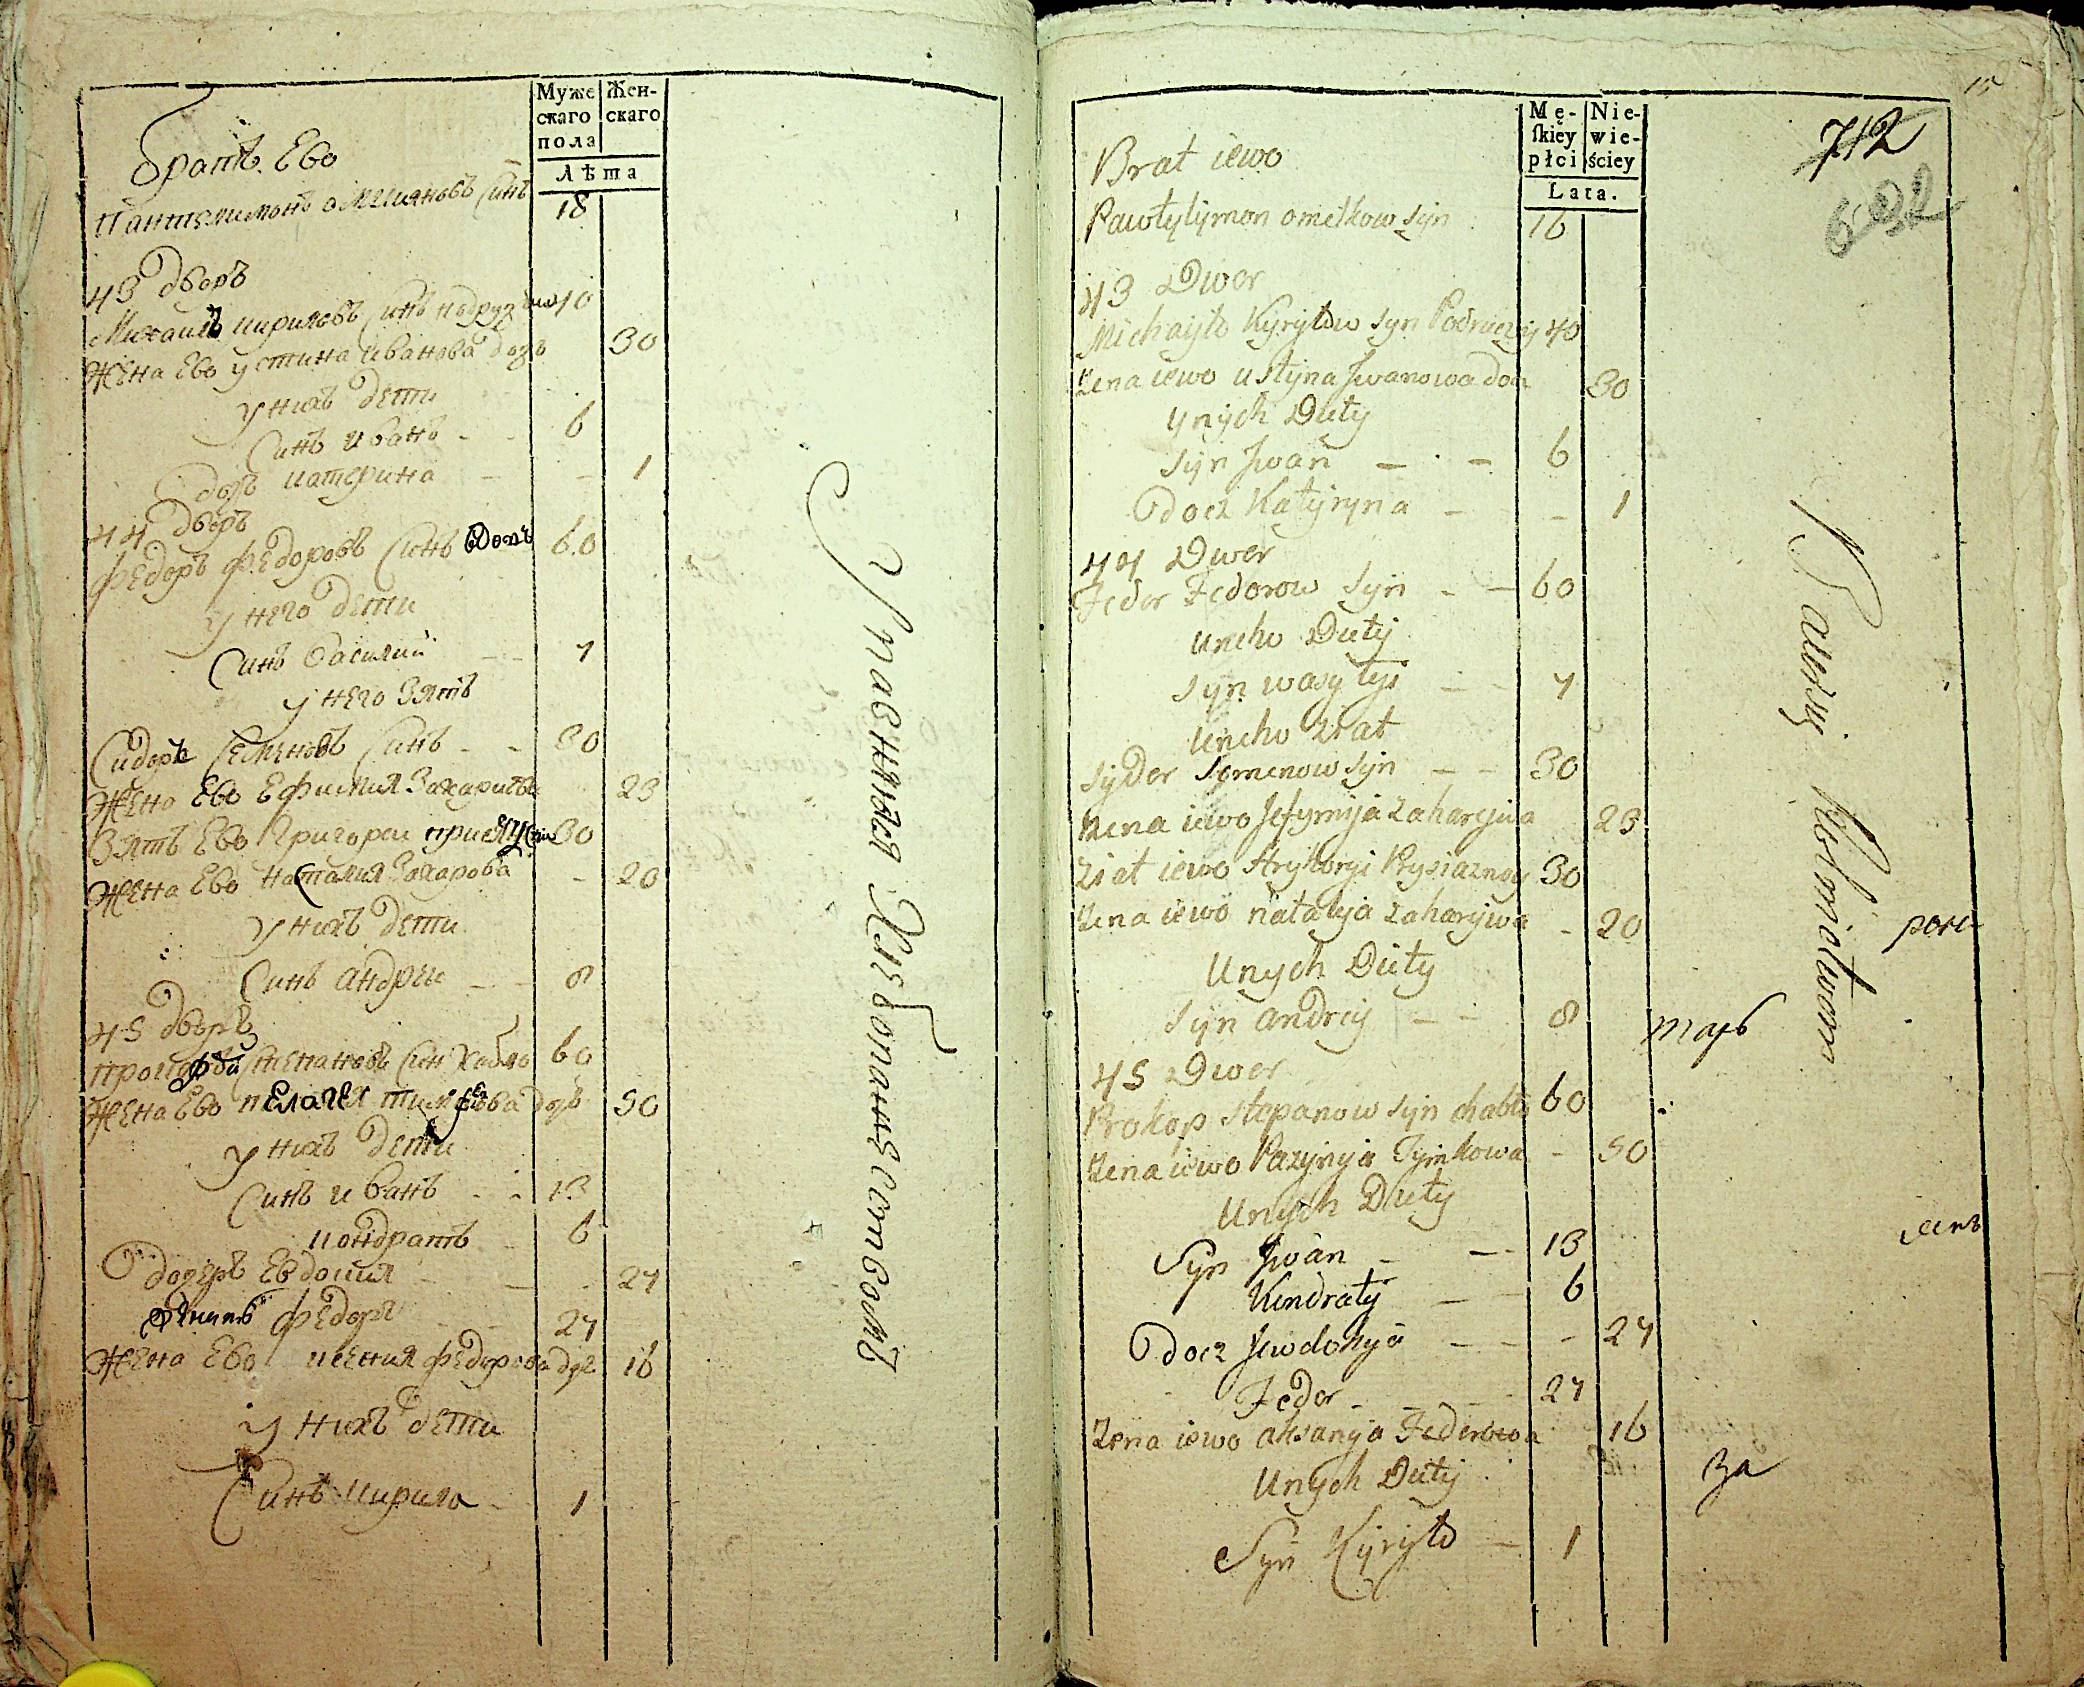 Муже
скаго
пола
Жен-
скаго
Лѣта
братъ Ево
Пантелимонъ омелияновъ Синъ 18
43 дворъ
Михаилъ кириловъ Синъ 40
Жена Ево устина Иванова дочъ 30
у нихъ дети
Синъ иванъ - - 6
дочъ катерина - - 1
44 дворъ
Федоръ Федоровъ Синъ вдовъ 60
у него дети
Синъ Василий - - 7
у него Зять
Сидоръ Семеновъ Синъ - - 30
Жена Ево Ефимия Захариева 23
Зять Ево Григореи 30
Жена Ево Наталия Захарова - 20
у нихъ дети
Синъ андреи - - 8
45 дворъ
Степановъ Син Хабло 60
Жена Ево пелагея дочъ 50
у нихъ дети
Синъ иванъ - - 13
кондратъ - 6
дочеръ Евдокия - - - 27
Федоръ - - 27
Жена Ево ксения Федорова доч 16
у нихъ дети
Синъ кирило - 1
Упражняются Хлебопашествомъ
15
712
692
Mę-
skiey
płci
Nie-
wie-
ściey
Lata.
Brat iewo
Pawtylymon omelkow syn 16
43 Dwer
Michayło Kyryłow syn 40
Żena iewo ustyna Jwanowa docz 30
ynych Dity
Syn Jwan - - - 6
Docz Katyryna - - - 1
44 Dwer
Feder Fedorow Syn - - 60
uneho Dity
Syn wasylyi - - 7
uneho ziat
Syder Semenow Syn - - 30
Żena iewo Jefymija zaharejwa 23
Ziat iewo Hryhoryi Prysiaznoy 30
Żena iewo natalyja zaharywa - 20
Unych Dity
Syn andrey - - 8
45 Dwer
Prokop Stepanow Syn chabło 60
Żena iewo Tymkowa - 50
Unych Dity
Syn Jwan - - - 13
Kindraty - - 6
Docz Jewdokyja - - - 27
Feder - - - 27
Żena iewo aksanyja Federowa 16
Unych Dity
Syn Kyryło - 1
Bawią
тарь
за